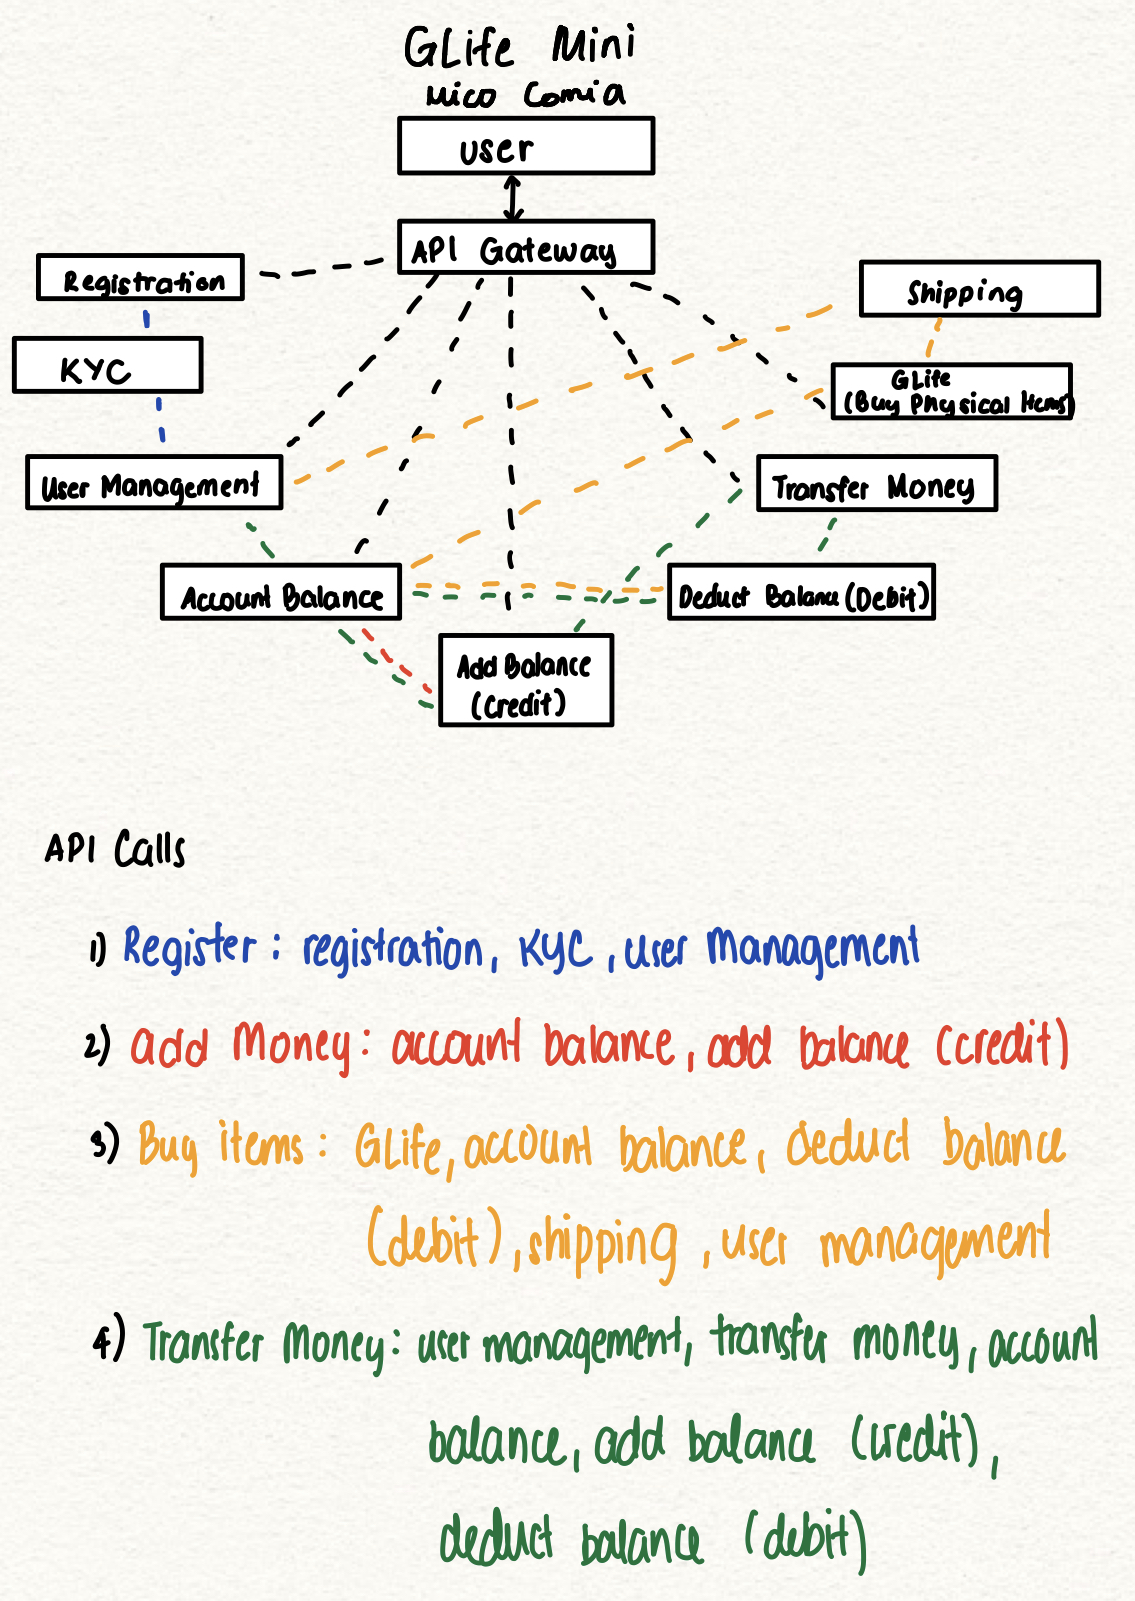 GLife Mini
Mico Comia
user
API Gateway
Registration
Shipping
KYC
GLife
(Buy Physical Items)
User Management
Transfer Money
Account Balance
Deduct Balance (Debit)
Add Balance
(Credit)
API Calls
1) Register: registration, KYC, user management
2) add Money: account balance, add balance (credit)
3) Buy items: GLife, account balance, deduct balance
(debit), shipping, user management
4) Transfer Money: user management, transfer money, account
balance, add balance (credit),
deduct balance (debit)